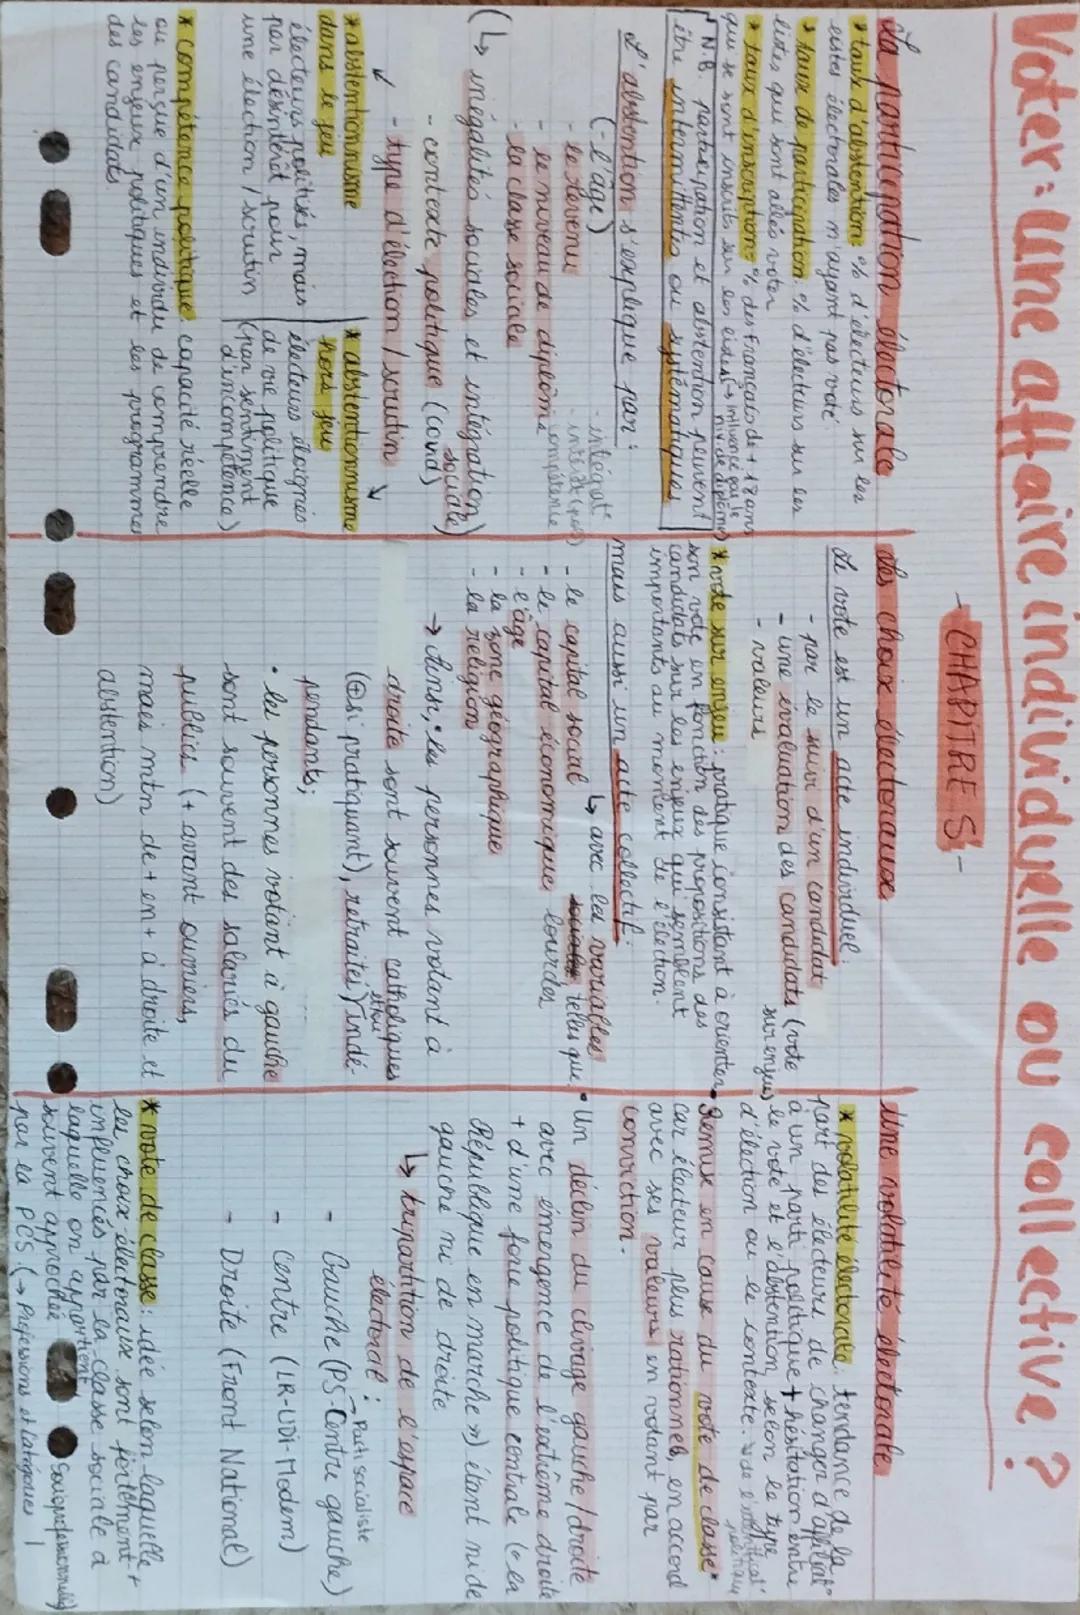 Voter : une affaire individuelle ou collective ?
- CHAPITRE 5 -
La participation électorale
* taux d'abstention : % d'électeurs sur les
listes électorales n'ayant pas voté.
* taux de participation : % d'électeurs sur les
listes qui sont allés voter
* taux d'inscription : % des Français de + 18 ans
qui se sont inscrits sur les listes (→ influencé par le
niv. de diplôme)
N.B. participation et abstention peuvent
être intermittentes ou systématiques
L'abstention s'explique par :
(- l'âge)
- le revenu
- le niveau de diplôme
- la classe sociale
- intégrat°
- intérêt (pol)
- compétence
(↳ inégalités sociales et intégration)
sociale
- contexte politique (covid)
- type d'élection / scrutin
* abstentionnisme
dans le jeu
électeurs politisés, mais
par désintérêt pour
une élection / scrutin
* abstentionnisme
hors jeu
électeurs éloignés
de vie politique
(par sentiment
d'incompétence)
* compétence politique : capacité réelle
ou perçue d'un individu de comprendre
les enjeux politiques et les programmes
des candidats.
Les choix électoraux
Le vote est un acte individuel :
- par le suivi d'un candidat
- une évaluation des candidats (vote
sur enjeu)
- valeurs
* vote sur enjeu : pratique consistant à orienter
son vote en fonction des propositions des
candidats sur les enjeux qui semblent
importants au moment de l'élection.
mais aussi un acte collectif :
↳ avec les variables
lourdes telles que :
- le capital social
- le capital économique
- l'âge
- la zone géographique
- la religion
→ Ainsi, • les personnes votant à
droite sont souvent catholiques
(⊕ si pratiquant), retraités et/ou indé-
pendants ;
• les personnes votant à gauche
sont souvent des salariés du
publics (+ avant ouvriers,
mais mtn de + en + à droite et
abstention)
Une volatilité électorale
* volatilité électorale : tendance de la
part des électeurs de changer d'affiliat°
à un parti politique + hésitation entre
le vote et l'abstention selon le type
d'élection ou le contexte.
• Remise en cause du vote de classe*
car électeur plus rationnel, en accord
avec ses valeurs en votant par
conviction.
• Un déclin du clivage gauche/droite
avec émergence de l'extrême droite
+ d'une force politique centrale (« la
République en marche ») étant ni de
gauche ni de droite
↳ tripartition de l'espace
électoral :
- Gauche (PS - Centre gauche)
Parti socialiste
- Centre (LR-UDI-Modem)
- Droite (Front National)
* vote de classe : idée selon laquelle
les choix électoraux sont fortement
influencés par la classe sociale à
laquelle on appartient
souvent approchée
par la PCS. (→ Professions et Catégories
socioprofessionnelles)